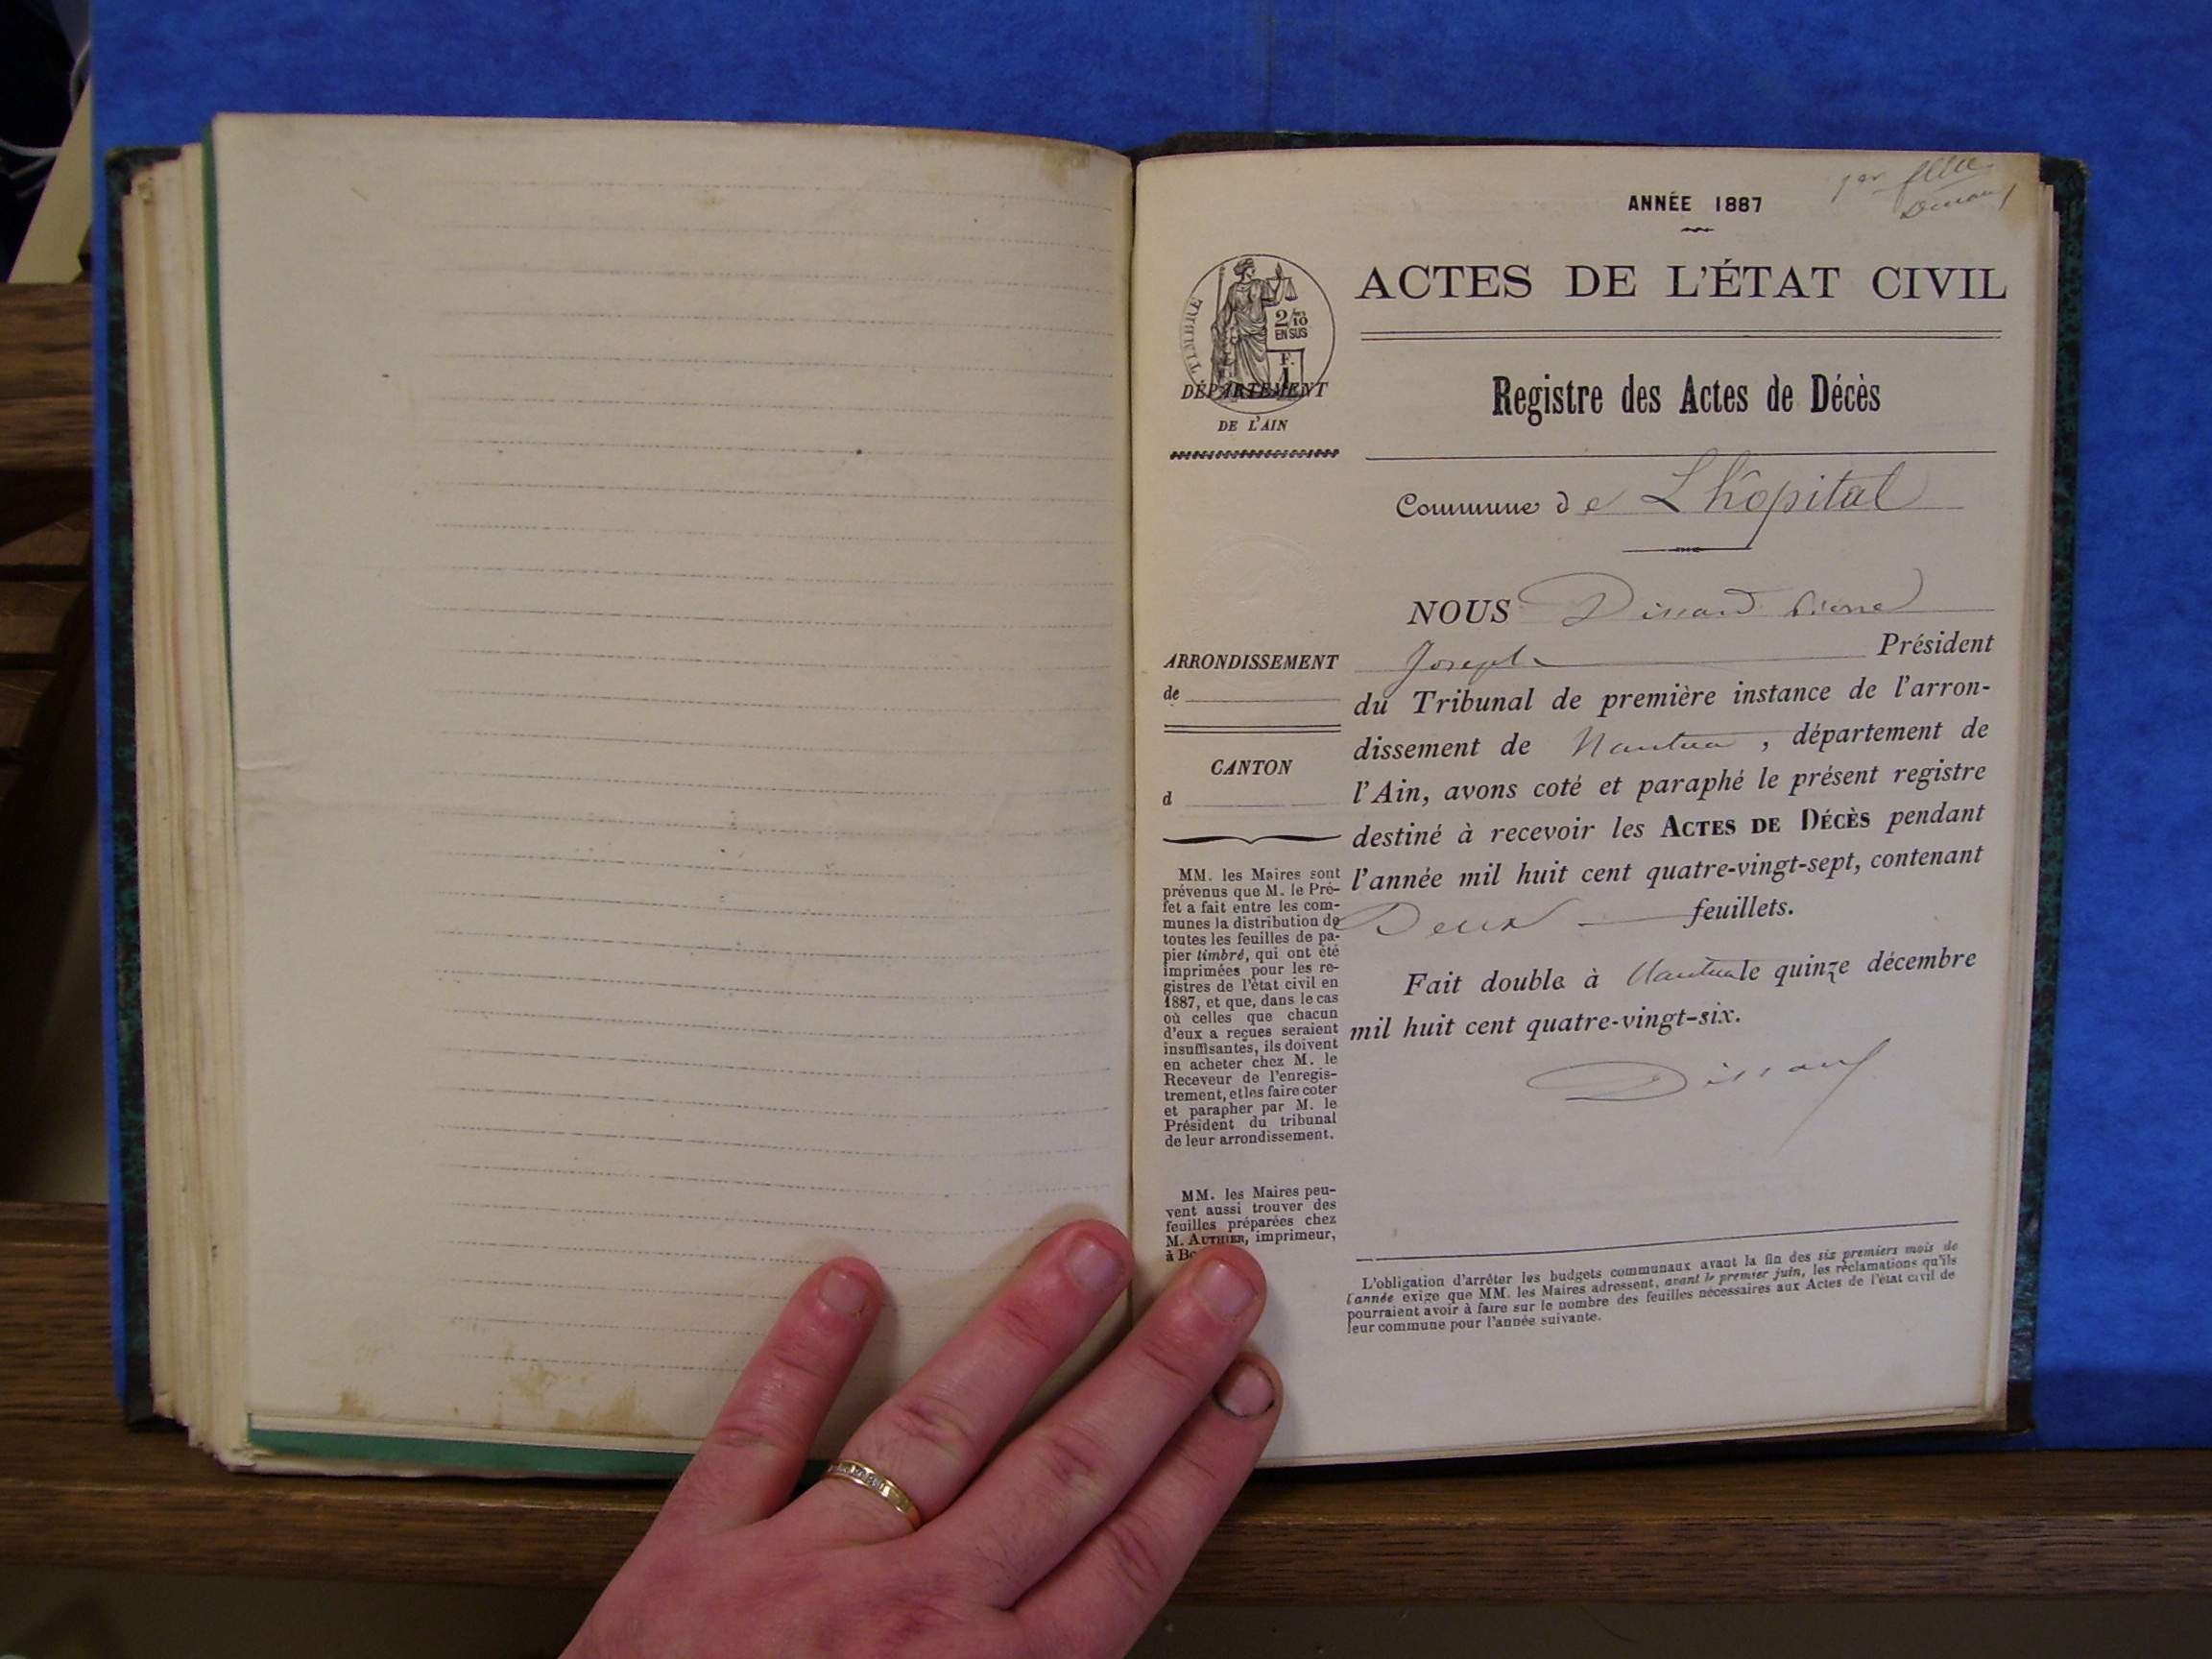 1er
ANNÉE 1887
ACTES DE L'ÉTAT CIVIL
TIMBRE
2/10
EN SUS
F.
1
DÉPARTEMENT
DE L'AIN
Registre des Actes de Décès
Commune de Lhôpital
NOUS Dissard Pierre
Joseph Président
du Tribunal de première instance de l'arron-
dissement de Nantua, département de
l'Ain, avons coté et paraphé le présent registre
destiné à recevoir les ACTES DE DÉCÈS pendant
l'année mil huit cent quatre-vingt-sept, contenant
Deux feuillets.
Fait double à Nantua le quinze décembre
mil huit cent quatre-vingt-six.
Dissard
ARRONDISSEMENT
de
CANTON
d
MM. les Maires sont
prévenus que M. le Pré-
fet a fait entre les com-
munes la distribution de
toutes les feuilles de pa-
pier timbré, qui ont été
imprimées pour les re-
gistres de l'état civil en
1887, et que, dans le cas
où celles que chacun
d'eux a reçues seraient
insuffisantes, ils doivent
en acheter chez M. le
Receveur de l'enregis-
trement, et les faire coter
et parapher par M. le
Président du tribunal
de leur arrondissement.
MM. les Maires peu-
vent aussi trouver des
feuilles préparées chez
M. AUTHIER, imprimeur,
à Bo
L'obligation d'arrêter les budgets communaux avant la fin des six premiers mois de
l'année exige que MM. les Maires adressent, avant le premier juin, les réclamations qu'ils
pourraient avoir à faire sur le nombre des feuilles nécessaires aux Actes de l'état civil de
leur commune pour l'année suivante.